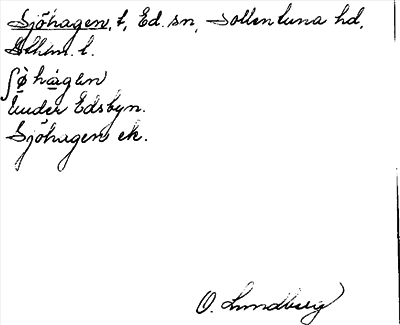 Sjöhagen, t, Ed. sn, Sollentuna hd,
Sthlm. l.
ʃö̀hágen
Under Edsbyn.
Sjöhagen ek.
O. Lundberg